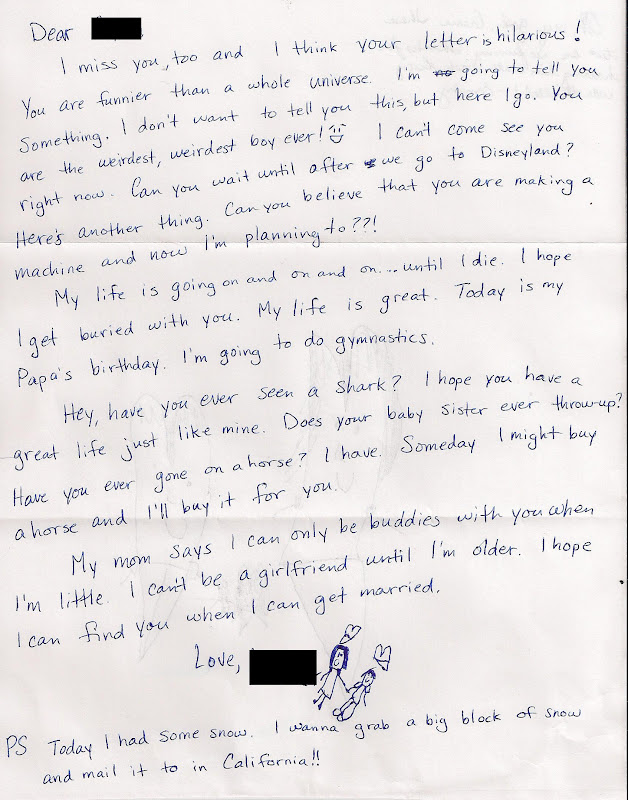 Dear
I miss you, too and I think your letter is hilarious!
You are funnier than a whole universe. I'm going to tell you
Something. I don't want to tell you this, but here I go. You
are the weirdest, weirdest boy ever! I can't come see you
right now. Can you wait until after we go to Disneyland?
Here's another thing. Can you believe that you are making a
machine and now I'm planning to??!
My life is going on and on and on... until I die. I hope
I get buried with you. My life is great. Today is my
Papa's birthday. I'm going to do gymnastics.
Hey, have you ever seen a shark? I hope you have a
great life just like mine. Does your baby sister ever throw-up?
Have you ever gone on a horse? I have. Someday I might buy
a horse and I'll buy it for you.
My mom says I can only be buddies with you when
I'm little. I can't be a girlfriend until I'm older. I hope
I can find you when I can get married.
Love,
PS Today I had some snow. I wanna grab a big block of snow
and mail it to in California!!